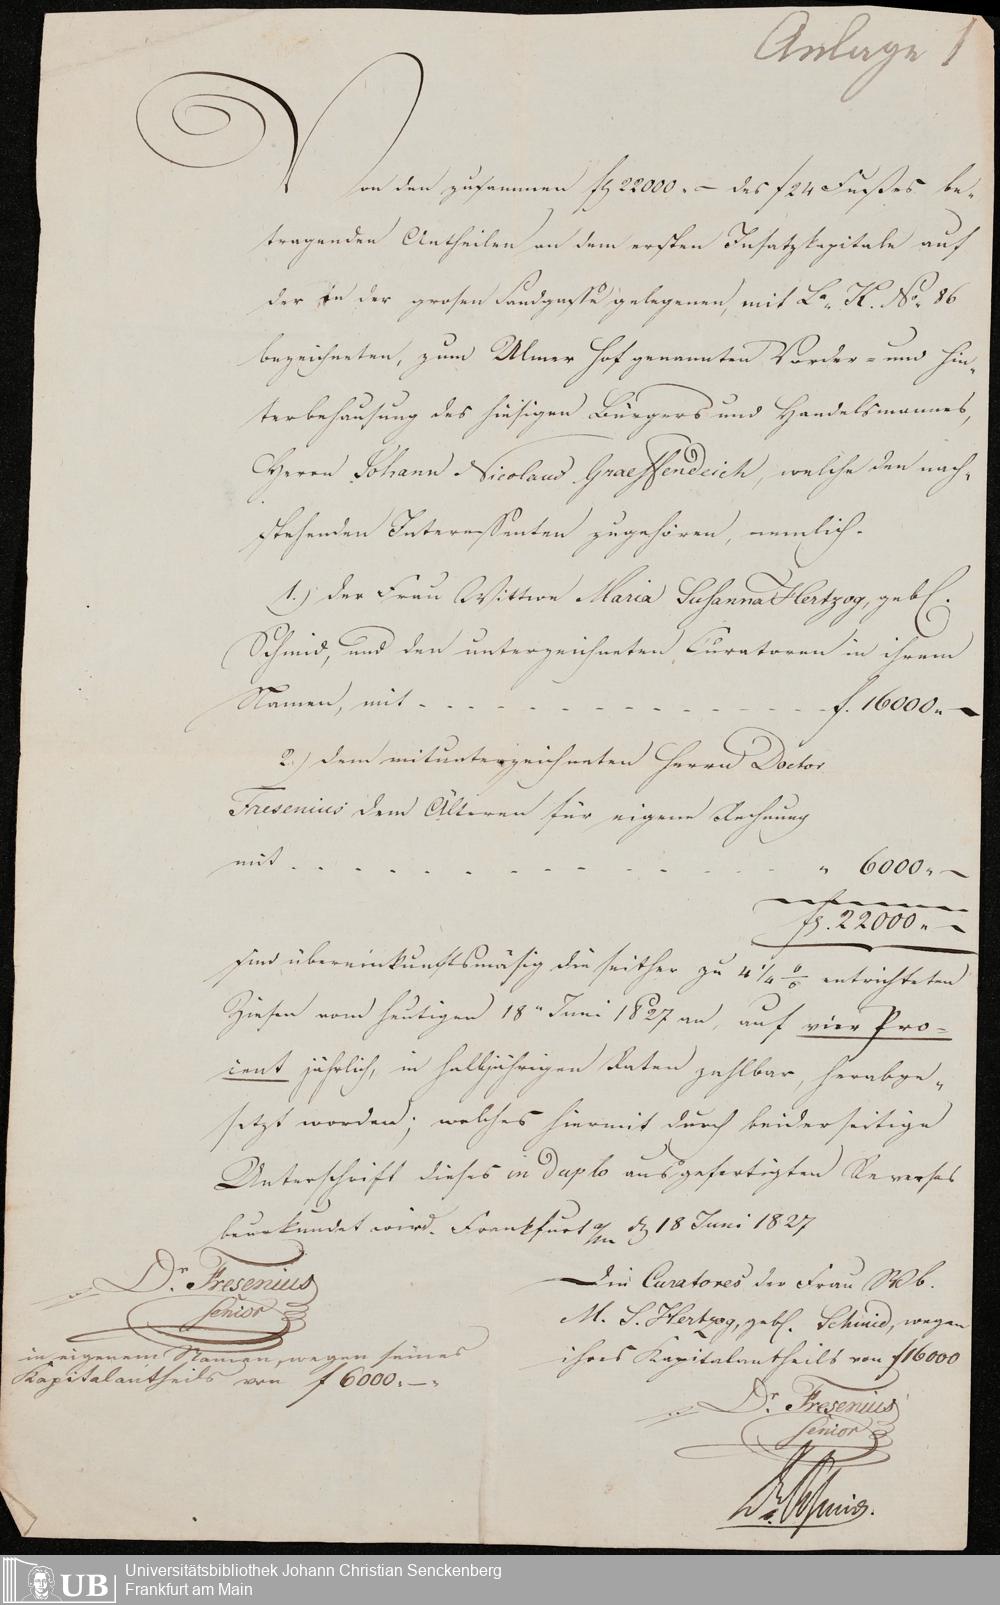 Anlage 1
Von den zusammen fl 22000.— des f 24 Fußes be-
tragenden Antheilen an dem ersten Insatzkapitale auf
der in der grosen Sandgasse gelegenen, mit La. K. No. 86
bezeichneten, zum Ulmer Hof genannten Vorder- und Hin-
terbehausung des hiesigen Bürgers und Handelsmannes,
Herrn Johann Nicolaus Graeffendeich, welche den nach-
stehenden Interessenten zugehören, nemlich.
1.) der Frau Wittwe Maria Susanna Hertzog, gebl.
Schmid, und den unterzeichneten Curatoren in ihrem
Namen, mit - - - - - - - - - - - - - - - - f. 16000.—
2.) dem mitunterzeichneten Herrn Doctor
Fresenius dem Älteren für eigene Rechnung
mit - - - - - - - - - - - - - - - " 6000.—
fl. 22000.—
sind übereinkunftsmäsig die seither zu 4 1/4 % entrichteten
Zinsen vom heutigen 18n Juni 1827 an, auf vier Pro-
cent jährlich, in halbjährigen Raten zahlbar, herabge-
setzt worden; welches hiermit durch beiderseitige
Unterschrift dieses in duplo ausgefertigten Reverses
beurkundet wird. Frankfurt a/m d 18 Juni 1827
Dr. Fresenius
senior
in eigenem Namen, wegen seines
Kapitalantheils von f 6000.—
Die Curatores der Frau Wb.
M. S. Hertzog, gebl. Schmid, wegen
ihres Kapitalantheils von f 16000
Dr. Fresenius
senior
Dr. Schmid.
UB
Universitätsbibliothek Johann Christian Senckenberg
Frankfurt am Main